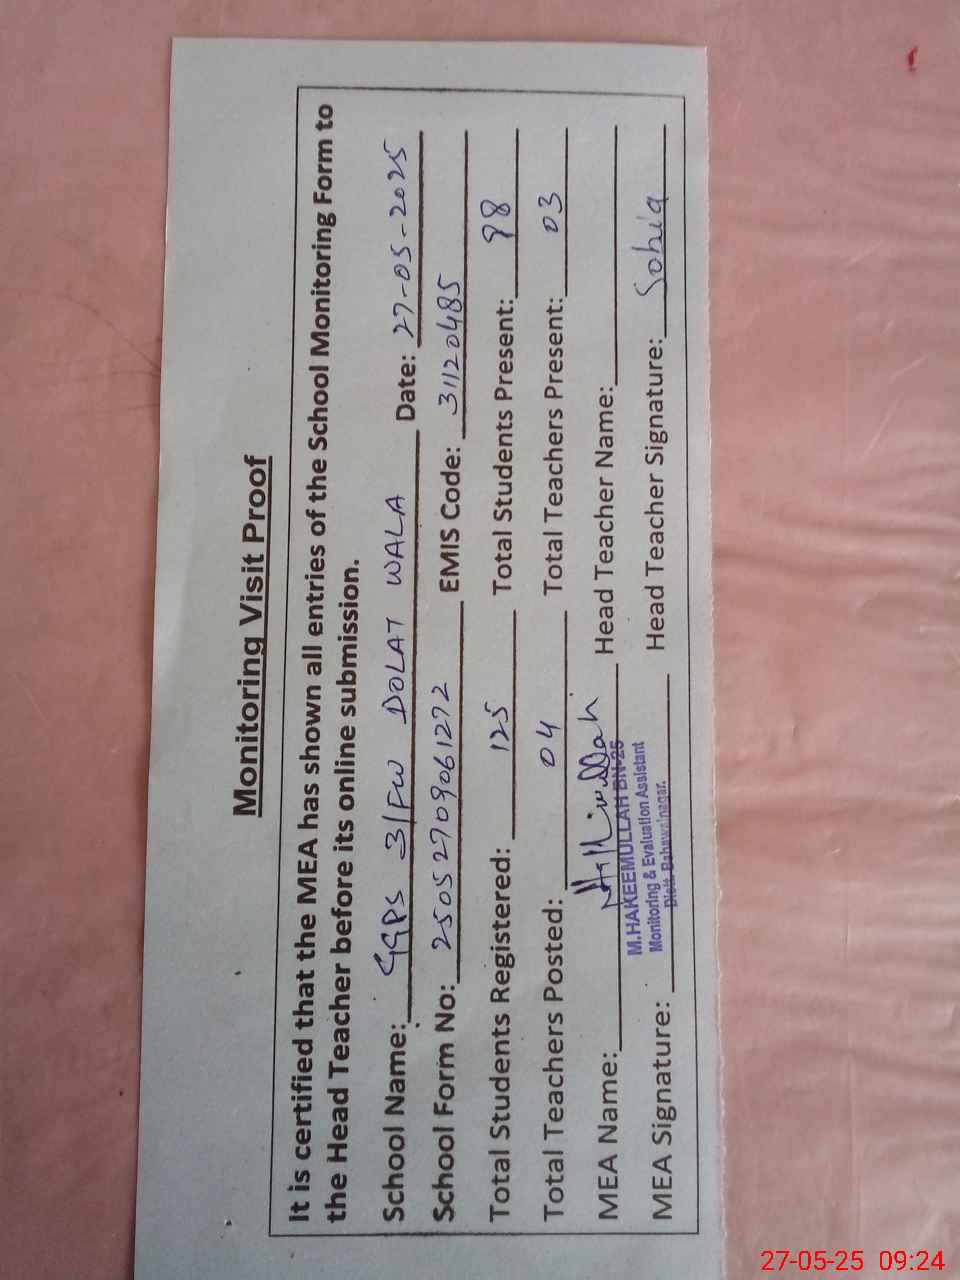 Monitoring Visit Proof
It is certified that the MEA has shown all entries of the School Monitoring Form to
the Head Teacher before its online submission.
School Name: GGPS 31FW DOLAT WALA Date: 27-05-2025
School Form No: 25052709061272 EMIS Code: 31120485
Total Students Registered: 125 Total Students Present: 98
Total Teachers Posted: 04 Total Teachers Present: 03
MEA Name: Head Teacher Name:
M.HAKEEMULLAH BN-25
Monitoring & Evaluation Assistant
Distt. Bahawalnagar.
MEA Signature: Head Teacher Signature: Sobia
27-05-25 09:24